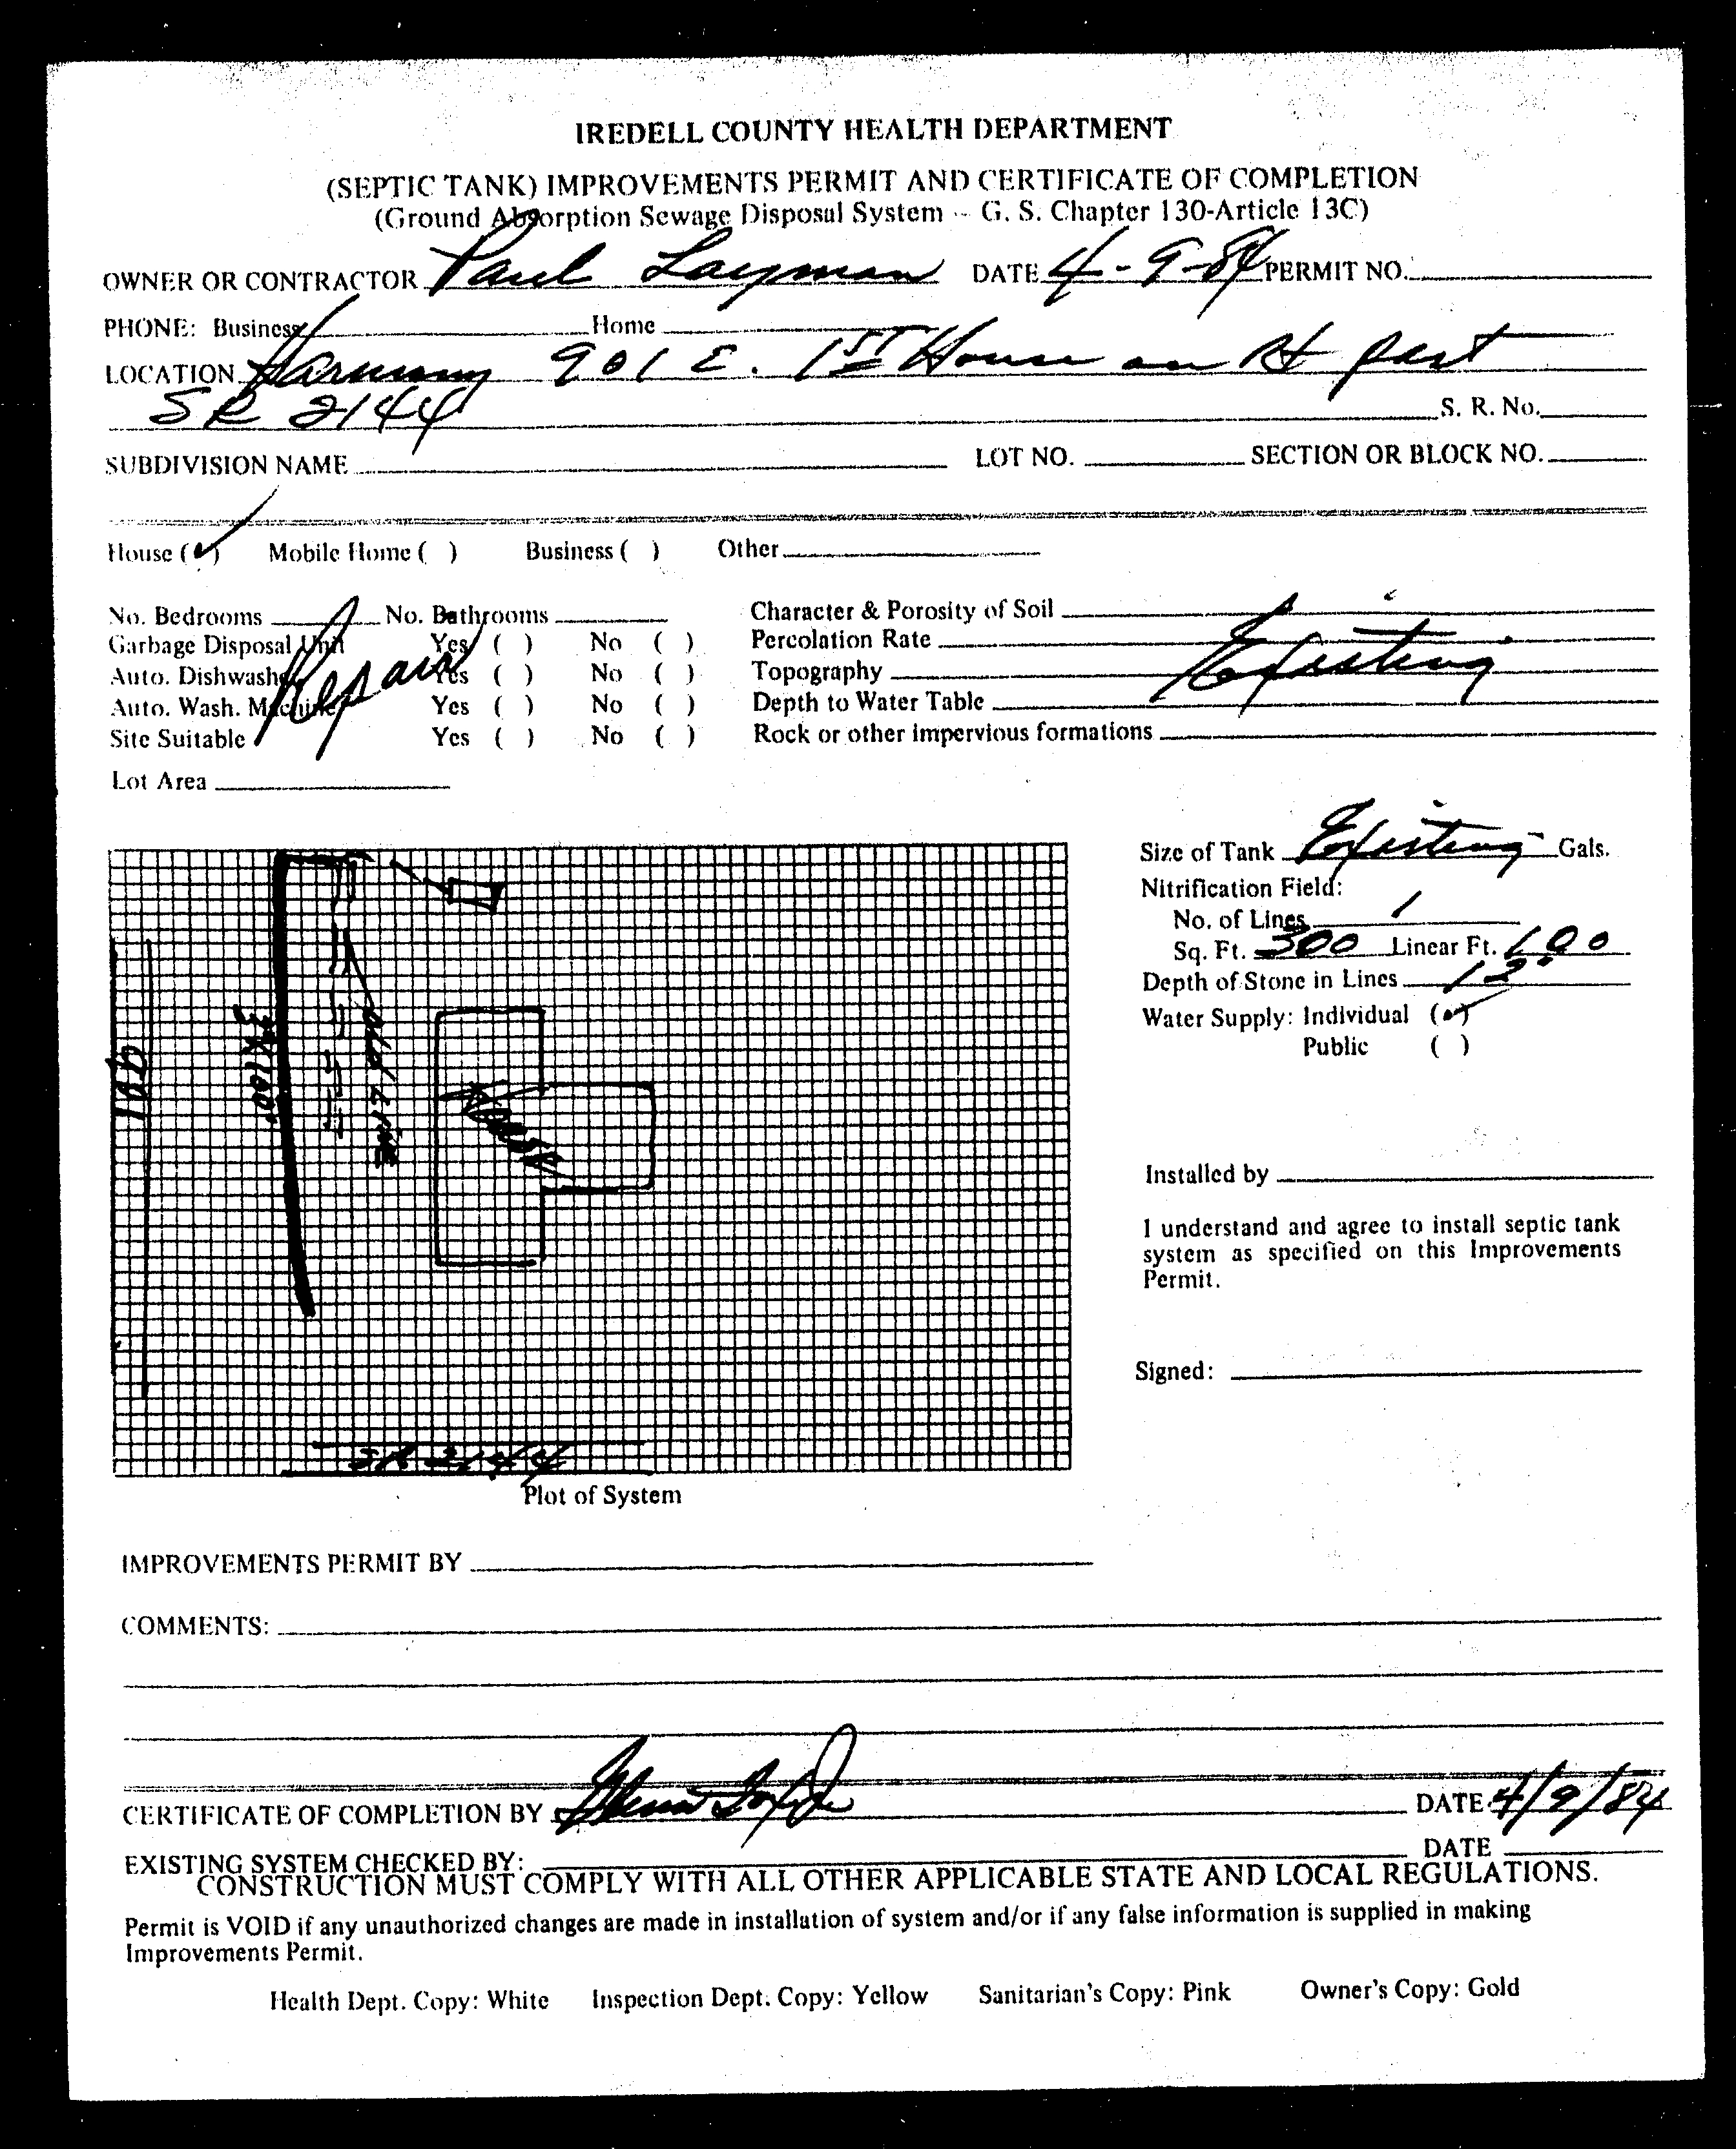 IREDELL COUNTY HEALTH DEPARTMENT
(SEPTIC TANK) IMPROVEMENTS PERMIT AND CERTIFICATE OF COMPLETION
(Ground Absorption Sewage Disposal System -- G. S. Chapter 130-Article 13C)
OWNER OR CONTRACTOR Paul Layman DATE 4-9-84 PERMIT NO.
PHONE: Business Home
LOCATION Harmony 901 E. 1ST House on Rt past
SR 2144 S. R. No.
SUBDIVISION NAME LOT NO. SECTION OR BLOCK NO.
House (✓) Mobile Home ( ) Business ( ) Other
No. Bedrooms No. Bathrooms Character & Porosity of Soil
Garbage Disposal Unit Yes ( ) No ( ) Percolation Rate
Repair Existing
Auto. Dishwasher Yes ( ) No ( ) Topography
Auto. Wash. Machine Yes ( ) No ( ) Depth to Water Table
Site Suitable Yes ( ) No ( ) Rock or other impervious formations
Lot Area
Size of Tank Existing Gals.
Nitrification Field:
No. of Lines 1
Sq. Ft. 300 Linear Ft. 100
Depth of Stone in Lines 12"
Water Supply: Individual (✓)
Public ( )
901
3'X100'
OLD LINE
House
SR 2144
Plot of System
Installed by
I understand and agree to install septic tank
system as specified on this Improvements
Permit.
Signed:
IMPROVEMENTS PERMIT BY
COMMENTS:
CERTIFICATE OF COMPLETION BY DATE 4/9/84
EXISTING SYSTEM CHECKED BY: DATE
CONSTRUCTION MUST COMPLY WITH ALL OTHER APPLICABLE STATE AND LOCAL REGULATIONS.
Permit is VOID if any unauthorized changes are made in installation of system and/or if any false information is supplied in making
Improvements Permit.
Health Dept. Copy: White Inspection Dept. Copy: Yellow Sanitarian's Copy: Pink Owner's Copy: Gold